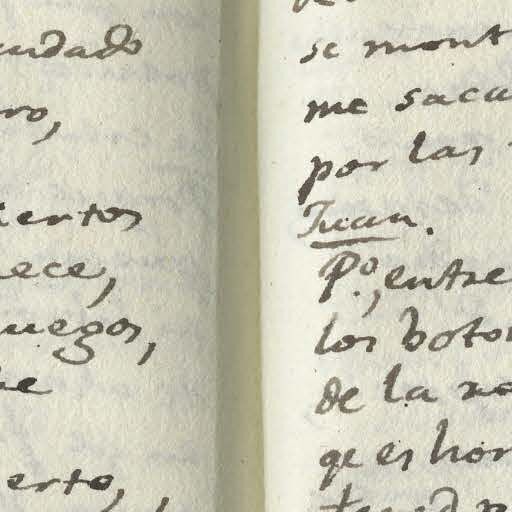 ro,
iertos
ece,
uegos,
erto,
se mont
me saca
por las
Juan.
P.º, entre
los boto
de la no
qe es hor